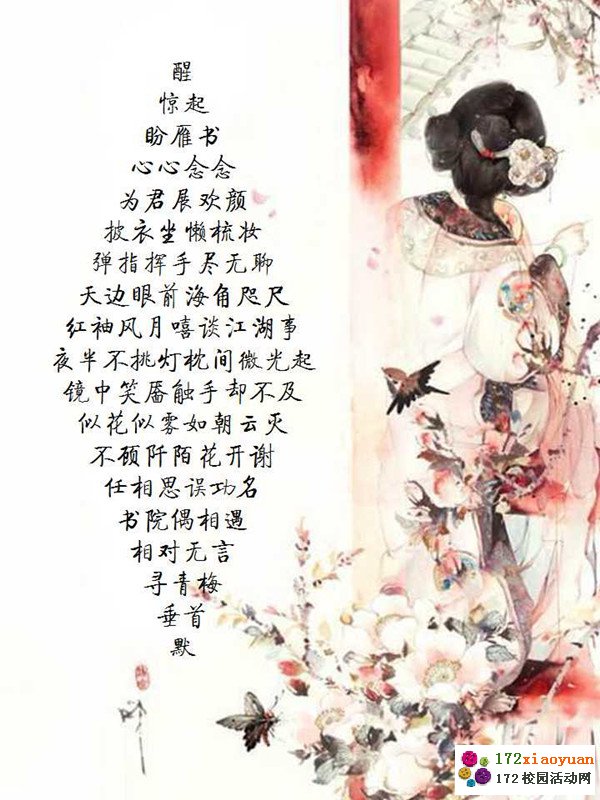 醒
惊起
盼雁书
心心念念
为君展欢颜
披衣坐懒梳妆
弹指挥手尽无聊
天边眼前海角咫尺
红袖风月嘻谈江湖事
夜半不挑灯枕间微光起
镜中笑靥触手却不及
似花似雾如朝云灭
不顾阡陌花开谢
任相思误功名
书院偶相遇
相对无言
寻青梅
垂首
默
172xiaoyuan
172校园活动网